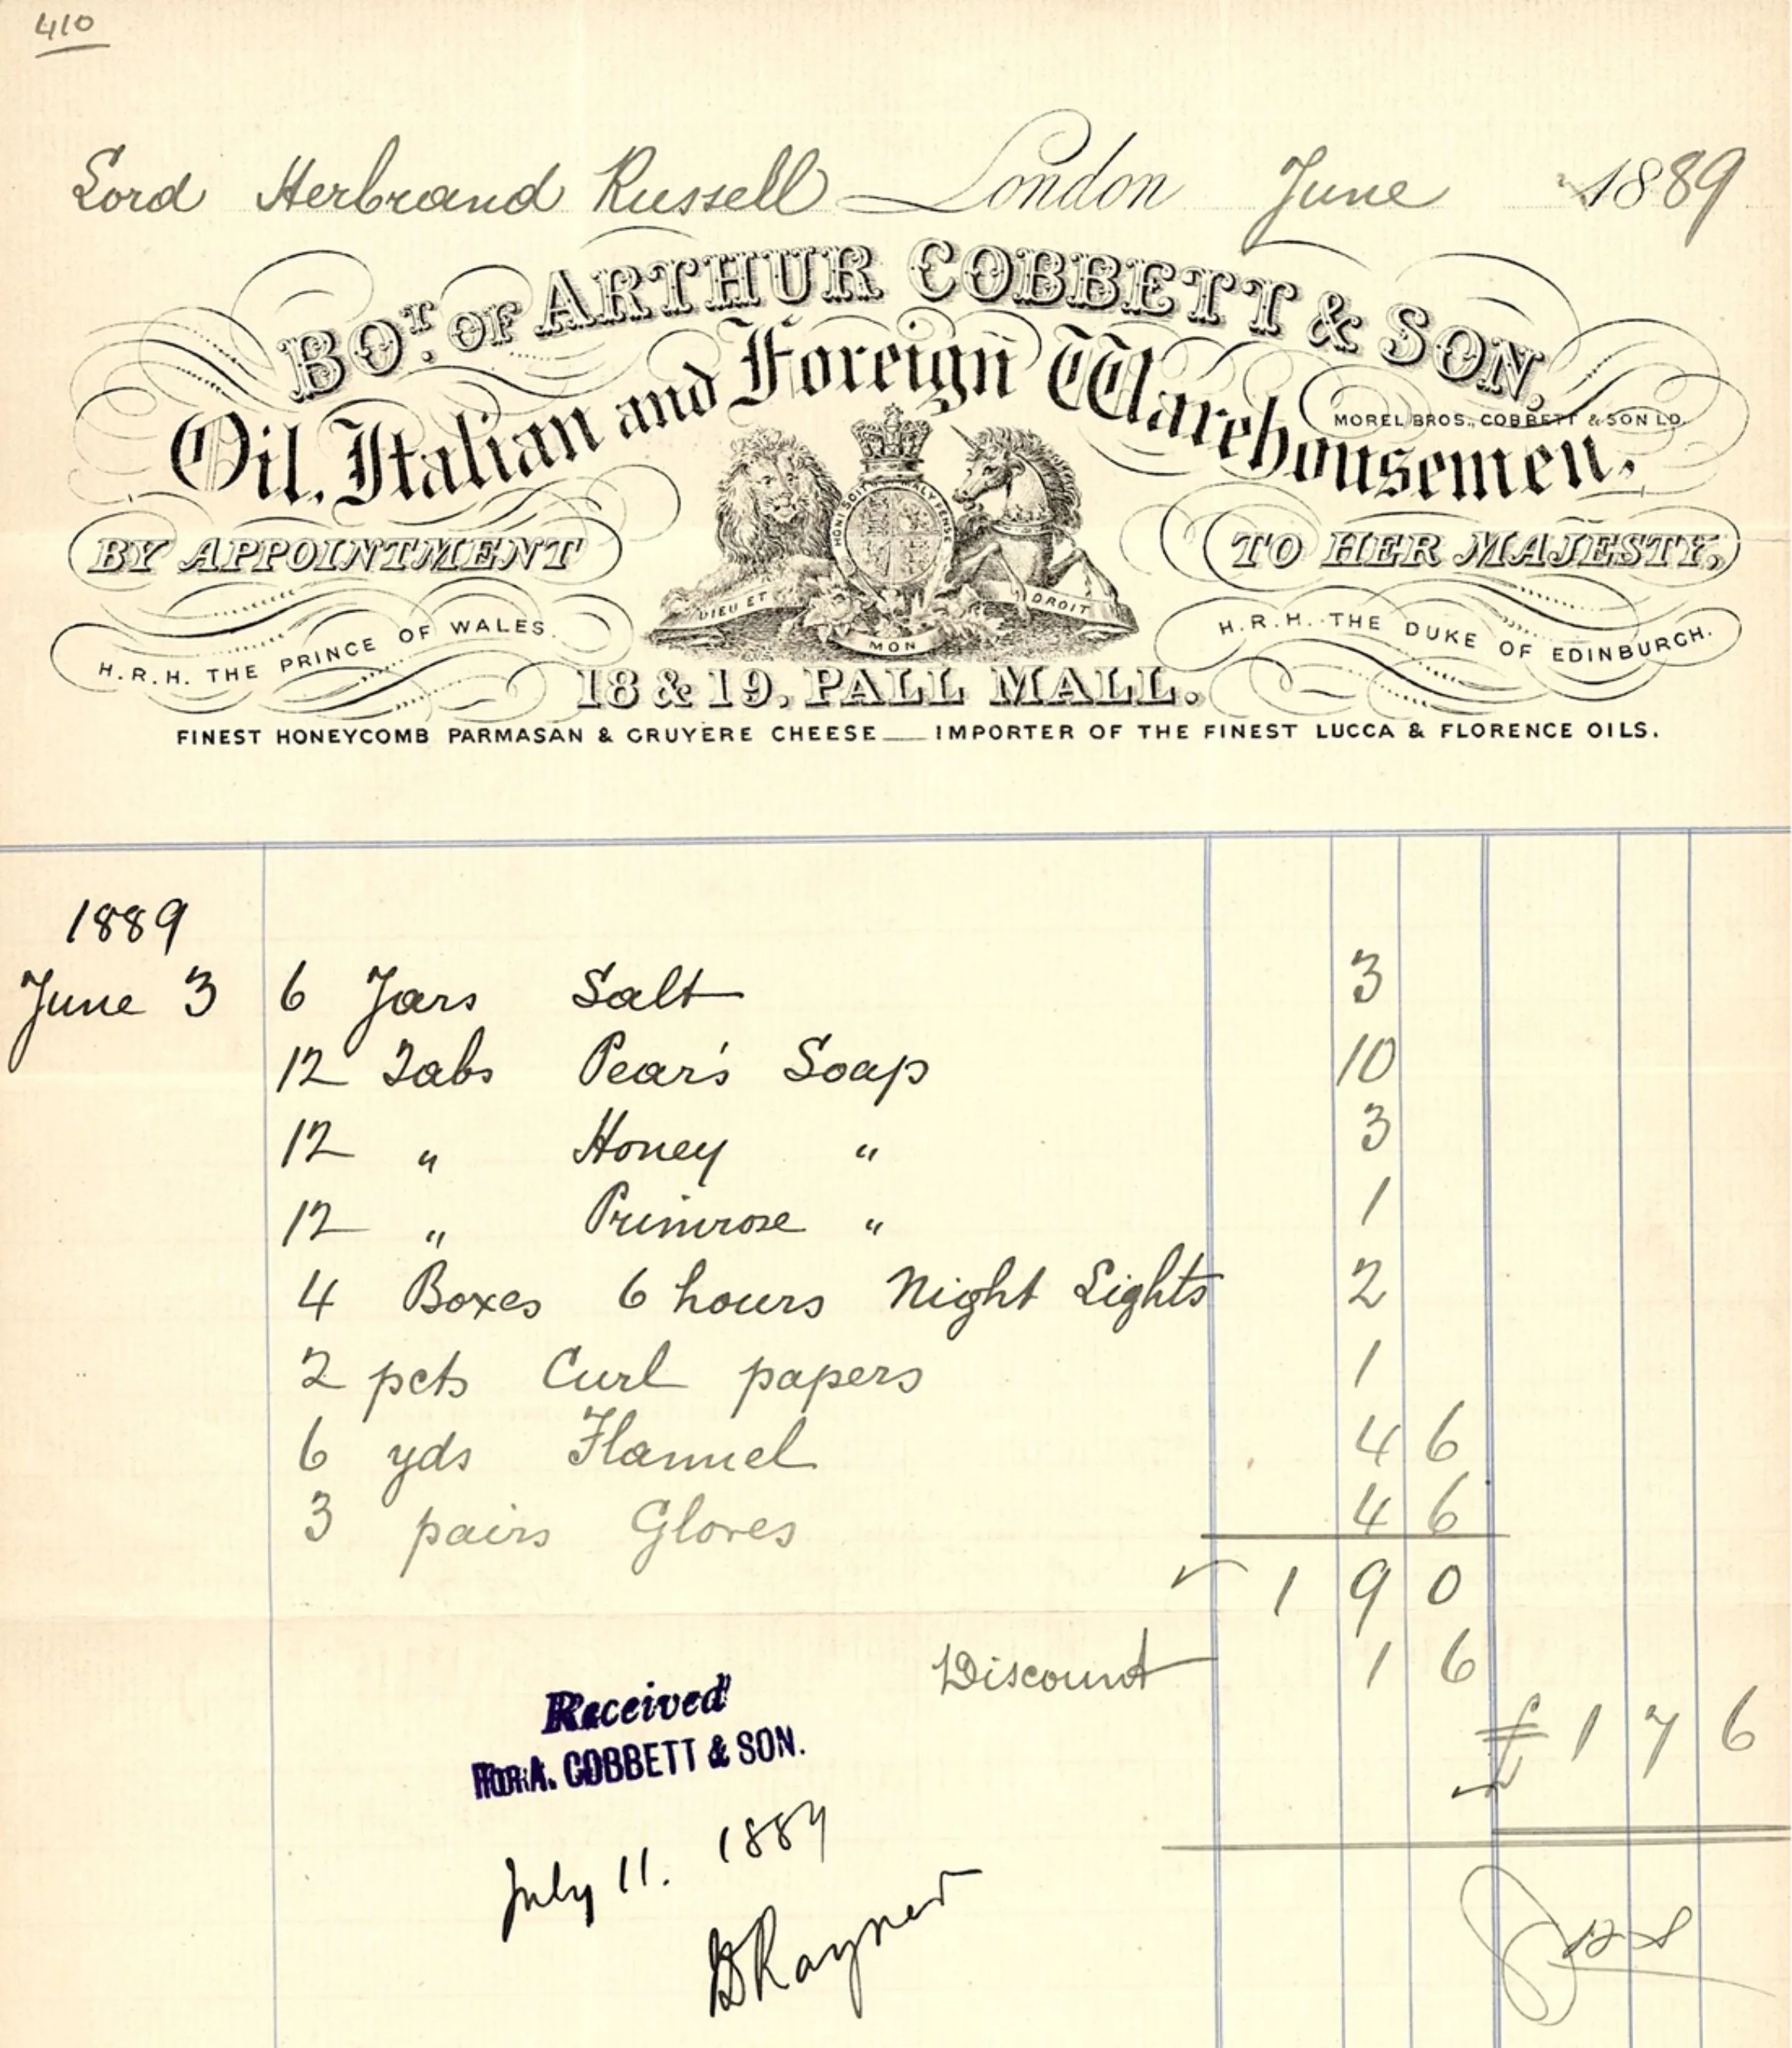 410
Lord Herbrand Russell London June 1889
BOT. OF ARTHUR COBBETT & SON,
MOREL BROS., COBBETT & SON LD.
Oil, Italian and Foreign Warehousemen,
HONI SOIT MAL Y PENSE
BY APPOINTMENT TO HER MAJESTY,
DIEU ET MON DROIT
H.R.H. THE PRINCE OF WALES. H.R.H. THE DUKE OF EDINBURGH.
18 & 19, PALL MALL.
FINEST HONEYCOMB PARMASAN & GRUYÈRE CHEESE — IMPORTER OF THE FINEST LUCCA & FLORENCE OILS.
1889
June 3 6 Jars Salt 3
12 Tabs Pear's Soap 10
12 " Honey " 3
12 " Primrose " 1
4 Boxes 6 hours Night Lights 2
2 pcts Curl papers 1
6 yds Flannel 4 6
3 pairs Gloves 4 6
1 9 0
Discount 1 6
£ 1 7 6
Received
For A. COBBETT & SON.
July 11. 1889
Rayner